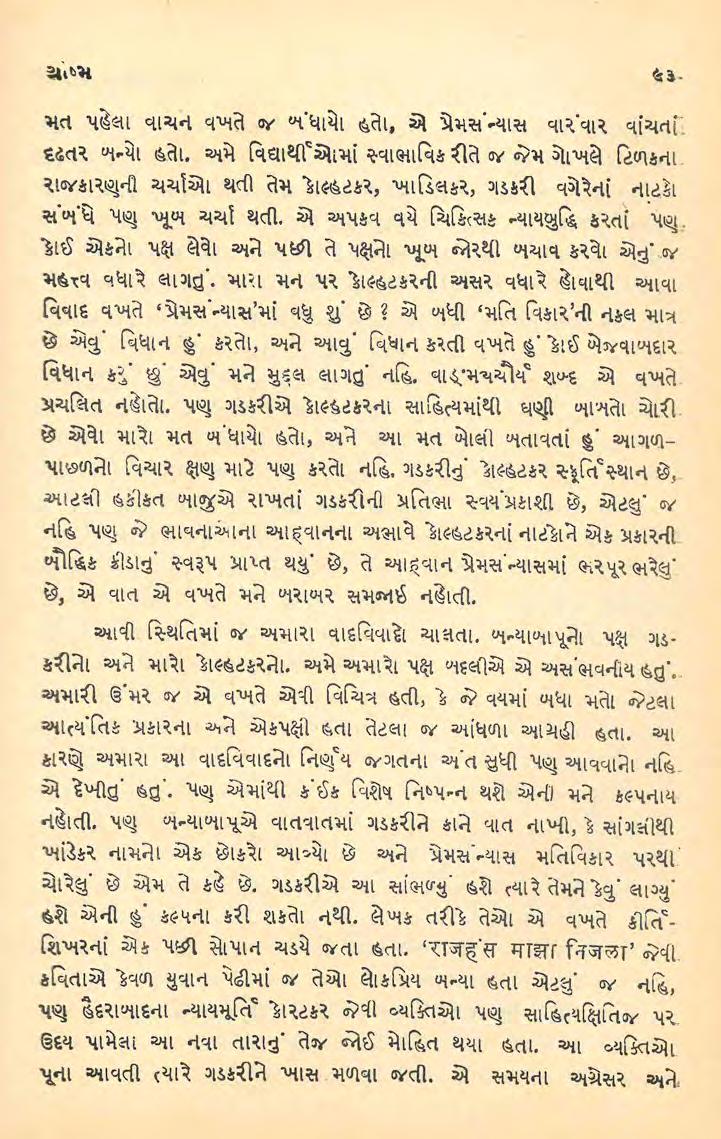 ગ્રીષ્મ ૯૩
મત પહેલા વાચન વખતે જ બંધાયો હતો, એ પ્રેમસંન્યાસ વારંવાર વાંચતાં
દઢતર બન્યો હતો. અમે વિદ્યાર્થીઓમાં સ્વાભાવિક રીતે જ જેમ ગોખલે ટિળકના
રાજકારણની ચર્ચાઓ થતી તેમ કોલ્હટકર, ખાડિલકર, ગડકરી વગેરેનાં નાટકો
સંબંધે પણ ખૂબ ચર્ચા થતી. એ અપકવ વયે ચિકિત્સક ન્યાયબુદ્ધિ કરતાં પણ
કોઈ એકનો પક્ષ લેવો અને પછી તે પક્ષનો ખૂબ જોરથી બચાવ કરવો એનું જ
મહત્ત્વ વધારે લાગતું. મારા મન પર કોલ્હટકરની અસર વધારે હોવાથી આવા
વિવાદ વખતે ‘પ્રેમસંન્યાસ’માં વધુ શું છે ? એ બધી ‘મતિ વિકાર’ની નકલ માત્ર
છે એવું વિધાન હું કરતો, અને આવું વિધાન કરતી વખતે હું કોઈ બેજવાબદાર
વિધાન કરું છું એવું મને મુદ્દલ લાગતું નહિ. વાઙ્મયચૌર્ય શબ્દ એ વખતે
પ્રચલિત નહોતો. પણ ગડકરીએ કોલ્હટકરના સાહિત્યમાંથી ઘણી બાબતો ચોરી
છે એવો મારો મત બંધાયો હતો, અને આ મત બોલી બતાવતાં હું આગળ–
પાછળનો વિચાર ક્ષણ માટે પણ કરતો નહિ. ગડકરીનું કોલ્હટકર સ્ફૂર્તિસ્થાન છે,
આટલી હકીકત બાજુએ રાખતાં ગડકરીની પ્રતિભા સ્વયંપ્રકાશી છે, એટલું જ
નહિ પણ જે ભાવનાઓના આહ્વાનના અભાવે કોલ્હટકરનાં નાટકોને એક પ્રકારની
બૌદ્ધિક ક્રીડાનું સ્વરૂપ પ્રાપ્ત થયું છે, તે આહ્વાન પ્રેમસંન્યાસમાં ભરપૂર ભરેલું
છે, એ વાત એ વખતે મને બરાબર સમજાઈ નહોતી.
આવી સ્થિતિમાં જ અમારા વાદવિવાદો ચાલતા. બન્યાબાપૂનો પક્ષ ગડ-
કરીનો અને મારો કોલ્હટકરનો. અમે અમારો પક્ષ બદલીએ એ અસંભવનીય હતું.
અમારી ઉંમર જ એ વખતે એવી વિચિત્ર હતી, કે જે વયમાં બધા મતો જેટલા
આત્યંતિક પ્રકારના અને એકપક્ષી હતા તેટલા જ આંધળા આગ્રહી હતા. આ
કારણે અમારા આ વાદવિવાદનો નિર્ણય જગતના અંત સુધી પણ આવવાનો નહિ
એ દેખીતું હતું. પણ એમાંથી કંઈક વિશેષ નિષ્પન્ન થશે એની મને કલ્પનાય
નહોતી. પણ બન્યાબાપૂએ વાતવાતમાં ગડકરીને કાને વાત નાખી, કે સાંગલીથી
ખાંડેકર નામનો એક છોકરો આવ્યો છે અને પ્રેમસંન્યાસ મતિવિકાર પરથી
ચોરેલું છે એમ તે કહે છે. ગડકરીએ આ સાંભળ્યું હશે ત્યારે તેમને કેવું લાગ્યું
હશે એની હું કલ્પના કરી શકતો નથી. લેખક તરીકે તેઓ એ વખતે કીર્તિ-
શિખરનાં એક પછી સોપાન ચડયે જતા હતા. ‘राजहंस माझा निजला’ જેવી
કવિતાએ કેવળ યુવાન પેઢીમાં જ તેઓ લોકપ્રિય બન્યા હતા એટલું જ નહિ,
પણ હૈદરાબાદના ન્યાયમૂર્તિ કોરટકર જેવી વ્યક્તિઓ પણ સાહિત્યક્ષિતિજ પર
ઉદય પામેલા આ નવા તારાનું તેજ જોઈ મોહિત થયા હતા. આ વ્યક્તિઓ
પૂના આવતી ત્યારે ગડકરીને ખાસ મળવા જતી. એ સમયના અગ્રેસર અને